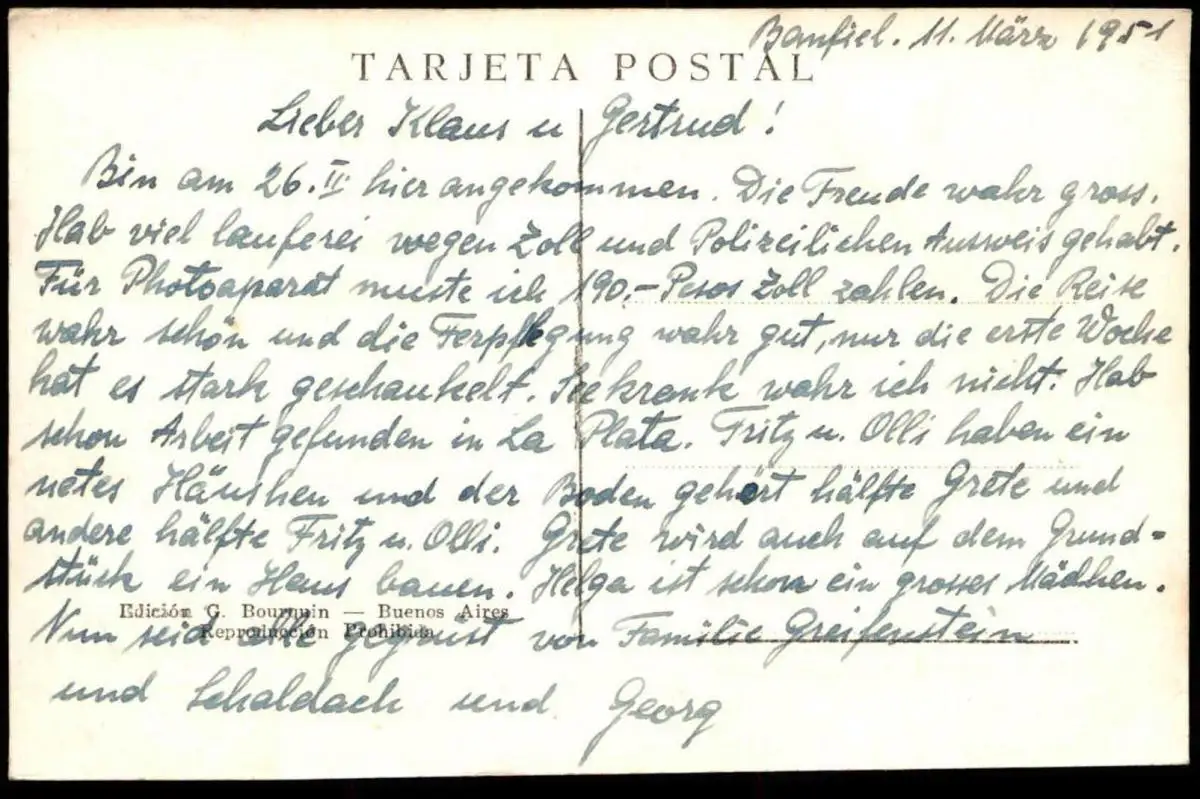 Banfiel. 11. März 1951
TARJETA POSTAL
Lieber Klaus u Gertrud!
Bin am 26. II hier angekommen. Die Freude wahr gross.
Hab viel lauferei wegen Zoll und Polizeilichen Ausweis gehabt.
Für Photoaparat muste ich 190.- Pesos Zoll zahlen. Die Reise
wahr schön und die Ferpflegung wahr gut, nur die erste Woche
hat es stark geschaukelt. Seekrank wahr ich nicht. Hab
schon Arbeit gefunden in La Plata. Fritz u. Olli haben ein
netes Häushen und der Boden gehört hälfte Grete und
andere hälfte Fritz u. Olli. Grete wird auch auf dem Grund=
stück ein Haus bauen. Helga ist schon ein grosses Mädhen.
Edición G. Bourquin — Buenos Aires
Reproducción Prohibida
Nun seid alle gegrüst von Familie Greifenstein
und Schaldach und Georg